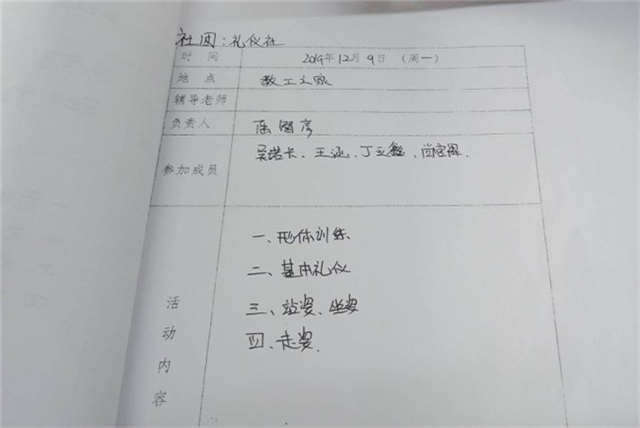 社团：礼仪社
时 间 2019年12月9日（周一）
地 点 教工之家
辅导老师
负责人
参加成员 吴诺卡、王涵、丁立鑫、
活动内容
一、形体训练
二、基本礼仪
三、站姿、坐姿
四、走姿.